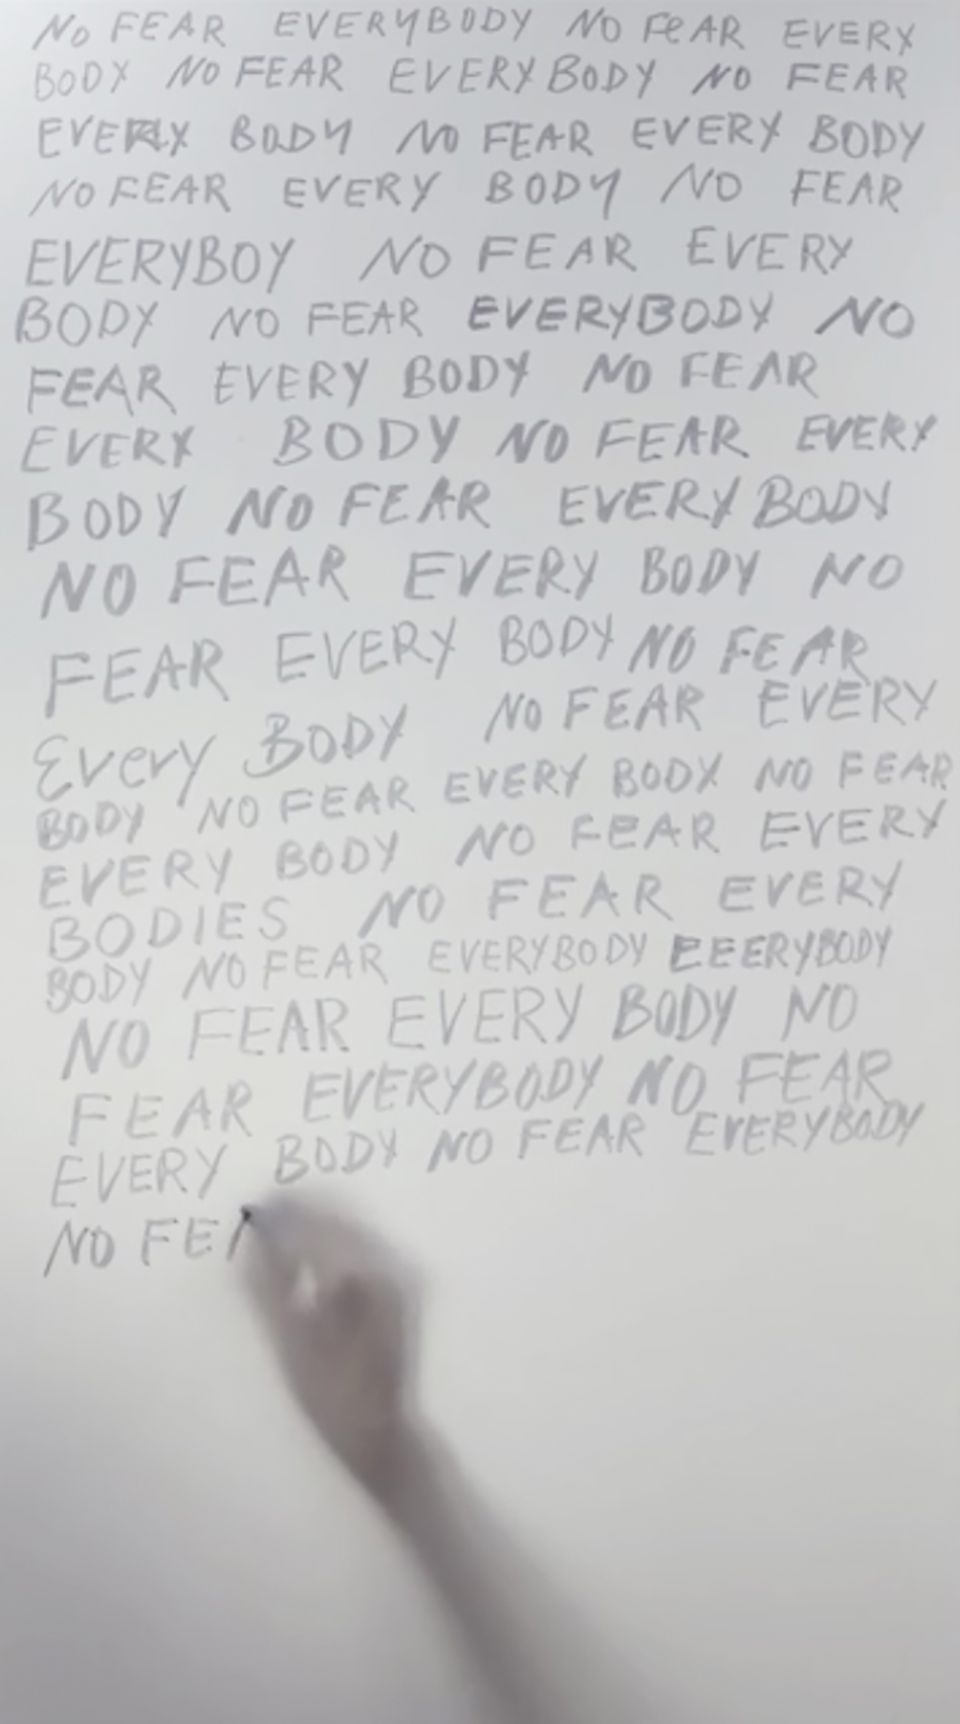 NO FEAR EVERYBODY NO FeAR EVERY
BODY NO FEAR EVERYBODY NO FEAR
EVERY BODY NO FEAR EVERY BODY
NO FEAR EVERY BODY NO FEAR
EVERYBOY NO FEAR EVERY
BODY NO FEAR EVERYBODY NO
FEAR EVERY BODY NO FEAR
EVERY BODY NO FEAR EVERY
BODY NO FEAR EVERY BODY
NO FEAR EVERY BODY NO
FEAR EVERY BODY NO FEAR
EVerY BODY NO FEAR EVERY
BODY NO FEAR EVERY BODY NO FEAR
EVERY BODY NO FEAR EVERY
BODIES NO FEAR EVERY
BODY NO FEAR EVERYBODY EEERYBODY
NO FEAR EVERY BODY NO
FEAR EVERYBODY NO FEAR
EVERY BODY NO FEAR EVERYBODY
NO FEA